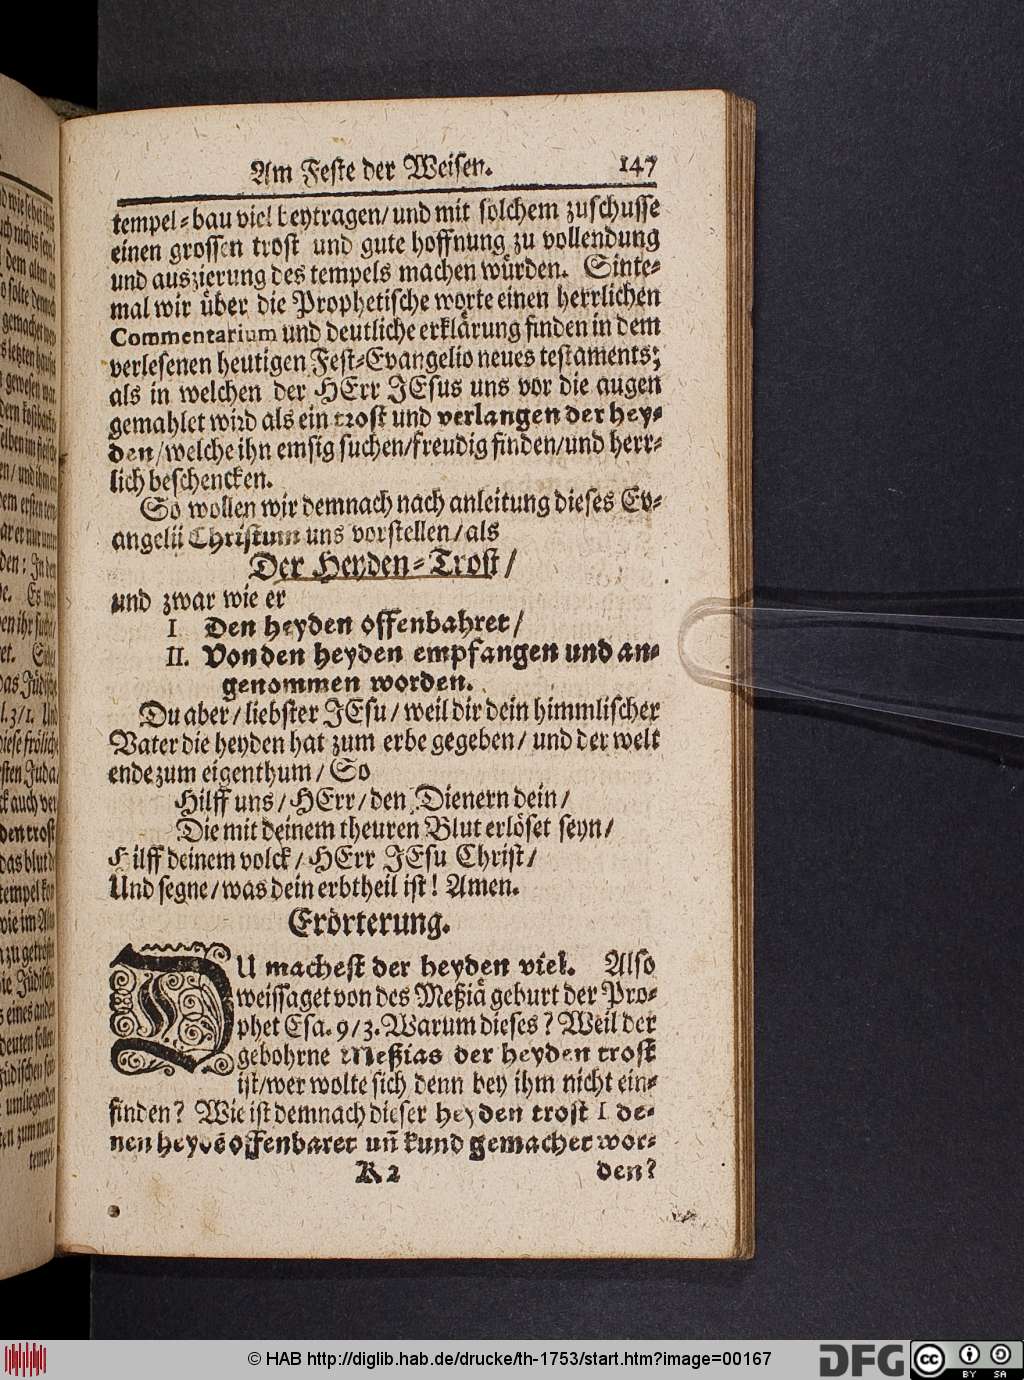 Am Feste der Weisen. 147
tempel-bau viel beytragen/ und mit solchem zuschusse
einen grossen trost und gute hoffnung zu vollendung
und auszierung des tempels machen würden. Sinte-
mal wir über die Prophetische worte einen herrlichen
Commentarium und deutliche erklärung finden in dem
verlesenen heutigen Fest-Evangelio neues testaments;
als in welchen der HErr JEsus uns vor die augen
gemahlet wird als ein trost und verlangen der hey-
den/welche ihn emsig suchen/freudig finden/und herr-
lich beschencken.
So wollen wir demnach nach anleitung dieses Ev-
angelii Christum uns vorstellen/als
Der Heyden-Trost/
und zwar wie er
I Den heyden offenbahret/
II. Von den heyden empfangen und an-
genommen worden.
Du aber/ liebster JEsu/ weil dir dein himmlischer
Vater die heyden hat zum erbe gegeben/ und der welt
ende zum eigenthum/ So
Hilff uns/ HErr/ den Dienern dein/
Die mit deinem theuren Blut erlöset seyn/
Hilff deinem volck/ HErr JEsu Christ/
Und segne/ was dein erbtheil ist! Amen.
Erörterung.
DU machest der heyden viel. Also
weissaget von des Meßiä geburt der Pro-
phet Esa. 9/3. Warum dieses? Weil der
gebohrne Meßias der heyden trost
ist/wer wolte sich denn bey ihm nicht ein-
finden? Wie ist demnach dieser heyden trost I de-
nen heydē offenbaret uñ kund gemachet wor-
K 2 den?
© HAB http://diglib.hab.de/drucke/th-1753/start.htm?image=00167 DFG cc BY SA